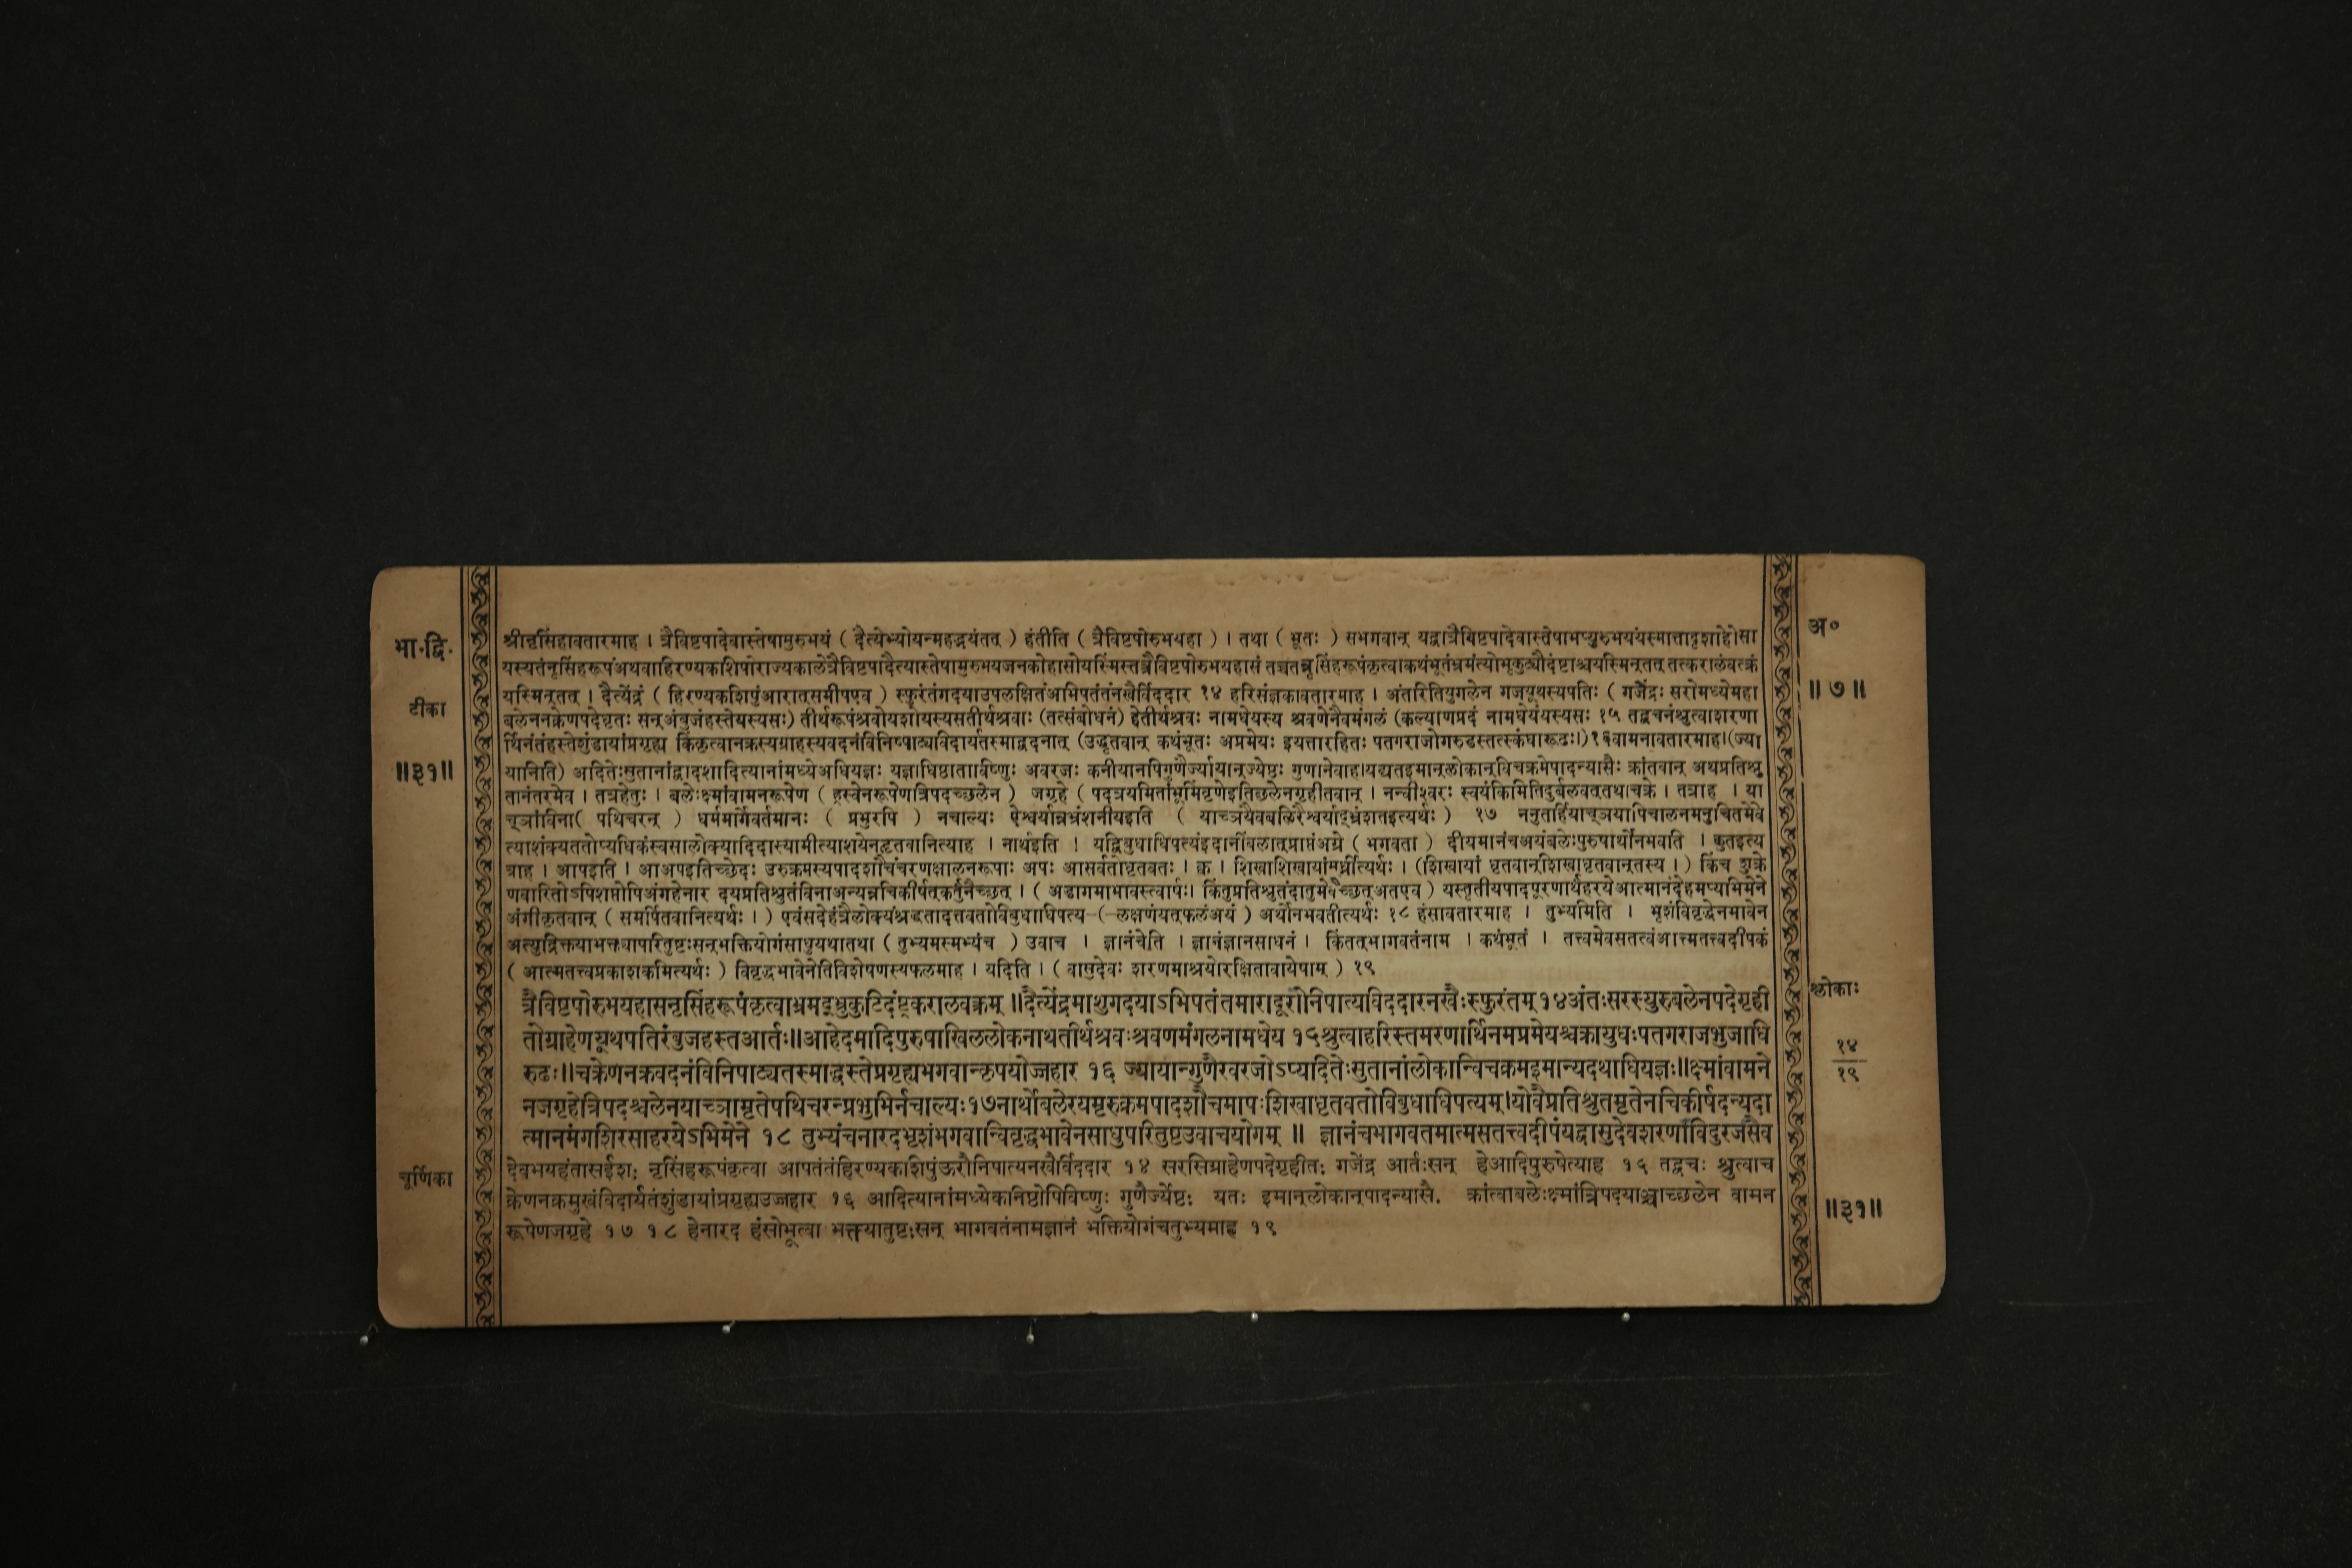 भा.द्वि.
टीका
॥३१॥
अ०
॥७॥
श्रीनृसिंहावतारमाह । त्रैविष्टपादेवास्तेषामुरुभयं ( दैत्येभ्योयन्महद्भयंतत् ) हंतीति ( त्रैविष्टपोरुभयहा ) । तथा ( भूतः ) सभगवान् यद्वात्रैविष्टपादेवास्तेषामप्युरुभयंयस्मात्तादृशाहोसा
यस्यतंनृसिंहरूपंअथवाहिरण्यकशिपोराज्यकालेत्रैविष्टपादैत्यास्तेषामुरुभयजनकोहासोयस्मिंस्तत्त्रैविष्टपोरुभयहासं तच्चतन्नृसिंहरूपंकृत्वाकथंभूतंभ्रमंत्योभृकुट्यौदंष्ट्राश्चयस्मिन्तत् तत्करालंवक्त्रं
यस्मिन्तत् । दैत्येंद्रं ( हिरण्यकशिपुंआरात्समीपएव ) स्फुरंतंगदयाउपलक्षितंअभिपतंतंनखैर्विददार १४ हरिसंज्ञकावतारमाह । अंतरितियुगलेन गजयूथस्यपतिः ( गजेंद्रः सरोमध्येमहा
बलेननक्रेणपदेधृतः सन्अंबुजंहस्तेयस्यसः) तीर्थरूपंश्रवोयशोयस्यसतीर्थश्रवाः (तत्संबोधनं) हेतीर्थश्रवः नामधेयस्य श्रवणेनैवमंगलं (कल्याणप्रदं नामधेयंयस्यसः १५ तद्वचनंश्रुत्वाशरणा
र्थिनंतंहस्तेशुंडायांप्रगृह्य किंकृत्वानक्रस्यग्राहस्यवदनंविनिष्पाट्यविदार्यतस्माद्वदनात् (उद्धृतवान् कथंभूतः अप्रमेयः इयत्तारहितः पतगराजोगरुडस्तत्स्कंधारूढः।)१६वामनावतारमाह।(ज्या
यानिति) अदितेःसुतानांद्वादशादित्यानांमध्येअधियज्ञः यज्ञाधिष्ठाताविष्णुः अवरजः कनीयानपिगुणैर्ज्यायान्ज्येष्ठः गुणानेवाह।यद्यतइमान्लोकान्विचक्रमेपादन्यासैः क्रांतवान् अथप्रतिश्रु
तानंतरमेव । तत्रहेतुः । बलेःक्ष्मांवामनरूपेण ( ह्रस्वेनरूपेणत्रिपदच्छलेन ) जगृहे ( पदत्रयमितांभूमिंवृणेइतिछलेनगृहीतवान् । नन्वीश्वरः स्वयंकिमितिदुर्बलवत्तथाचक्रे । तत्राह । या
च्ञांविना( पथिचरन् ) धर्ममार्गेवर्तमानः ( प्रभुरपि ) नचाल्यः ऐश्वर्यान्नभ्रंशनीयइति ( याच्ञयैवबलिरैश्वर्याद्भ्रंशतइत्यर्थः ) १७ ननुतर्हियाच्ञयापिचालनमनुचितमेवे
त्याशंक्यततोप्यधिकंस्वसालोक्यादिदास्यामीत्याशयेनहृतवानित्याह । नार्थइति । यद्विबुधाधिपत्यंइदानींबलात्प्राप्तंअग्रे ( भगवता ) दीयमानंचअयंबलेःपुरुषार्थोनभवति । कुतइत्य
त्राह । आपइति । आअपइतिच्छेदः उरुक्रमस्यपादशौचंचरणक्षालनरूपाः अपः आसर्वतोधृतवतः । क्व । शिखाशिखायांमूर्ध्नीत्यर्थः । (शिखायां धृतवान्शिखाधृतवान्तस्य ।) किंच शुक्रे
णवारितोऽपिशप्तोपिअंगहेनार दयप्रतिश्रुतंविनाअन्यन्नचिकीर्षत्कर्तुंनैच्छत् । ( अडागमाभावस्त्वार्षः। किंतुप्रतिश्रुतंदातुमेवैच्छत्अतएव ) यस्तृतीयपादपूरणार्थंहरयेआत्मानंदेहमप्यभिमेने
अंगीकृतवान् ( समर्पितवानित्यर्थः । ) एवंसदेहंत्रैलोक्यंश्रद्धतादत्तवतोविबुधाधिपत्य ( लक्षणंयत्फलंअयं ) अर्थोनभवतीत्यर्थः १८ हंसावतारमाह । तुभ्यमिति । भृशंविवृद्धेनभावेन
अत्युद्रिक्तयाभक्त्यापरितुष्टःसन्भक्तियोगंसाधुयथातथा ( तुभ्यमस्मभ्यंच ) उवाच । ज्ञानंचेति । ज्ञानंज्ञानसाधनं । किंतत्भागवतंनाम । कथंभूतं । तत्त्वमेवसतत्वंआत्मतत्त्वदीपकं
( आत्मतत्त्वप्रकाशकमित्यर्थः ) विवृद्धभावेनेतिविशेषणस्यफलमाह । यदिति । ( वासुदेवः शरणमाश्रयोरक्षितावायेषाम् ) १९
त्रैविष्टपोरुभयहासनृसिंहरूपंकृत्वाभ्रमद्भ्रुकुटिदंष्ट्रकरालवक्त्रम् ॥दैत्येंद्रमाशुगदयाऽभिपतंतमारादूरौनिपात्यविददारनखैःस्फुरंतम्१४अंतःसरस्युरुबलेनपदेगृही
तोग्राहेणयूथपतिरंबुजहस्तआर्तः॥आहेदमादिपुरुषाखिललोकनाथतीर्थश्रवःश्रवणमंगलनामधेय १५श्रुत्वाहरिस्तमरणार्थिनमप्रमेयश्चक्रायुधःपतगराजभुजाधि
रुढः॥चक्रेणनक्रवदनंविनिपाट्यतस्माद्धस्तेप्रगृह्यभगवान्कृपयोज्जहार १६ ज्यायान्गुणैरवरजोऽप्यदितेःसुतानांलोकान्विचक्रमइमान्यदथाधियज्ञः॥क्ष्मांवामने
नजगृहेत्रिपदश्चलेनयाच्ञामृतेपथिचरन्प्रभुभिर्नचाल्यः१७नार्थोबलेरयमुरुक्रमपादशौचमापःशिखाधृतवतोविबुधाधिपत्यम्।योवैप्रतिश्रुतमृतेनचिकीर्षदन्यदा
त्मानमंगशिरसाहरयेऽभिमेने १८ तुभ्यंचनारदभृशंभगवान्विवृद्धभावेनसाधुपरितुष्टउवाचयोगम् ॥ ज्ञानंचभागवतमात्मसतत्त्वदीपंयद्वासुदेवशरणाविदुरंजसैव
श्लोकाः
१४
१९
चूर्णिका
देवभयहंतासईशः नृसिंहरूपंकृत्वा आपतंतंहिरण्यकशिपुंऊरौनिपात्यनखैर्विददार १४ सरसिग्राहेणपदेगृहीतः गजेंद्र आर्तःसन् हेआदिपुरुषेत्याह १५ तद्वचः श्रुत्वाच
क्रेणनक्रमुखंविदार्यतंशुंडायांप्रगृह्यउज्जहार १६ आदित्यानांमध्येकनिष्ठोपिविष्णुः गुणैर्ज्येष्ठः यतः इमान्लोकान्पादन्यासै. क्रांत्वाबलेःक्ष्मांत्रिपदयाञ्चाच्छलेन वामन
रूपेणजगृहे १७ १८ हेनारद हंसोभूत्वा भक्त्यातुष्टःसन् भागवतंनामज्ञानं भक्तियोगंचतुभ्यमाह १९
॥३१॥